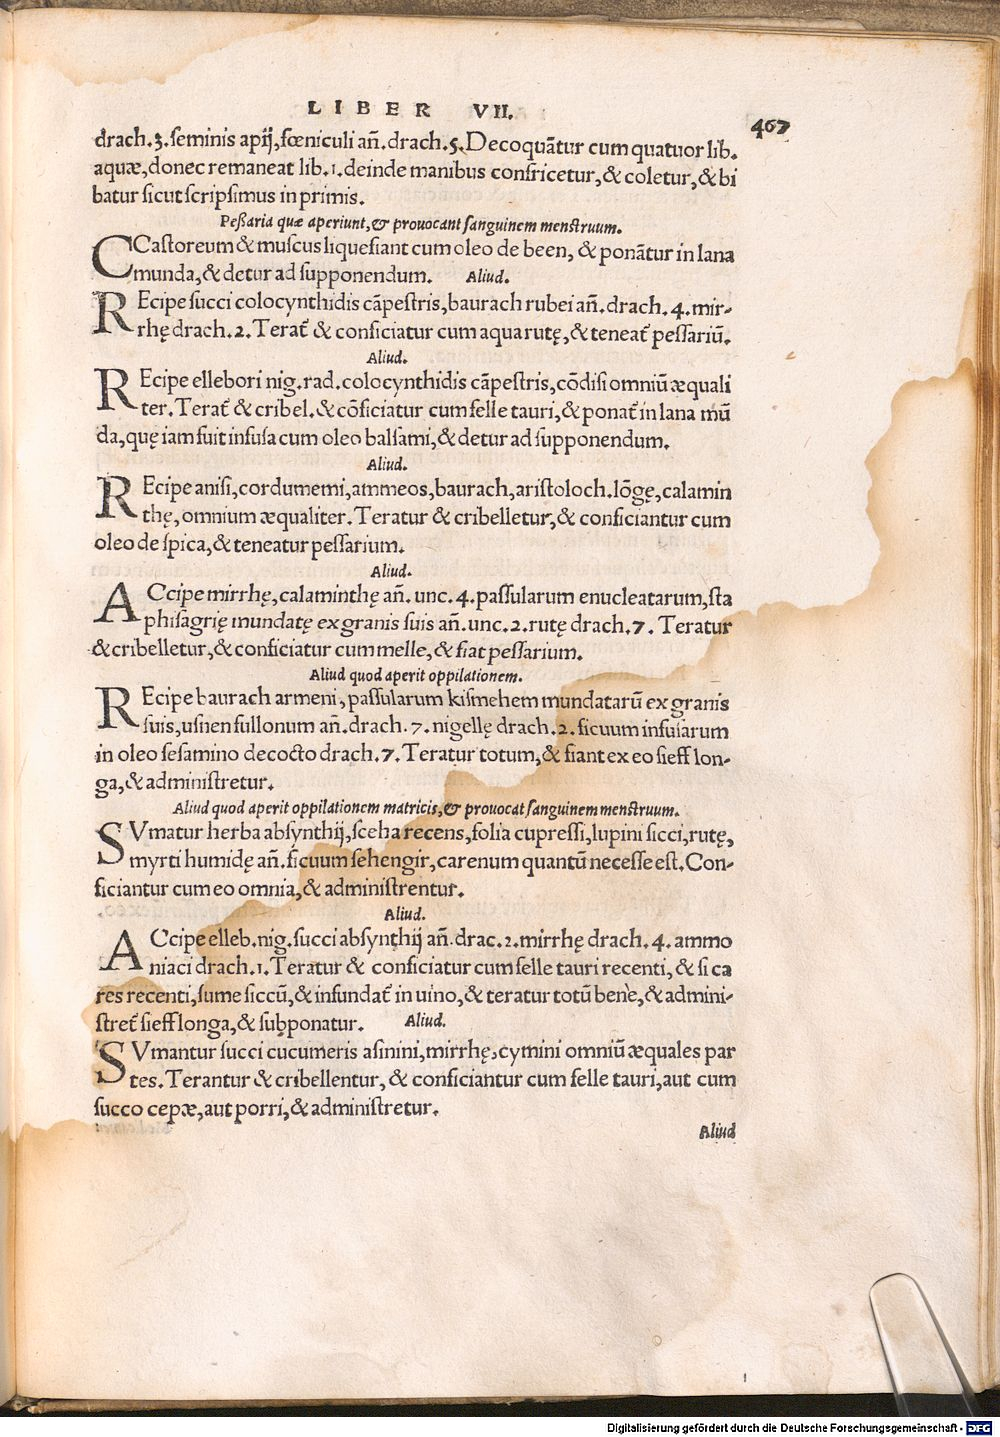 LIBER VII.
467
drach.3.seminis apij,fœniculi añ.drach.5.Decoquãtur cum quatuor lib.
aquæ,donec remaneat lib.1.deinde manibus confricetur,& coletur,& bi
batur sicut scripsimus in primis.
Peßaria quæ aperiunt,& prouocant sanguinem menstruum.
CCastoreum & muscus liquefiant cum oleo de been, & ponãtur in lana
munda,& detur ad supponendum. Aliud.
REcipe succi colocynthidis cãpestris,baurach rubei añ.drach.4.mir-
rhę drach.2.Terat̃ & conficiatur cum aqua rutę,& teneat̃ pessariũ.
Aliud.
REcipe ellebori nig.rad.colocynthidis cãpestris,cõdisi omniũ æquali
ter.Terat̃ & cribel.& cõficiatur cum felle tauri,& ponat̃ in lana mũ
da,quę iam fuit infusa cum oleo balsami,& detur ad supponendum.
Aliud.
REcipe anisi,cordumemi,ammeos,baurach,aristoloch.lõgę,calamin
thę,omnium æqualiter.Teratur & cribelletur,& conficiantur cum
oleo de spica,& teneatur pessarium.
Aliud.
ACcipe mirrhę,calaminthę añ.unc.4.passularum enucleatarum,sta
phisagrię mundatę ex granis suis añ.unc.2.rutę drach.7.Teratur
& cribelletur,& conficiatur cum melle,& fiat pessarium.
Aliud quod aperit oppilationem.
REcipe baurach armeni,passularum kismehem mundatarũ ex granis
suis,usnen fullonum añ.drach.7.nigellę drach.2.ficuum infusarum
in oleo sesamino decocto drach.7.Teratur totum,& fiant ex eo sieff lon-
ga,& administretur.
Aliud quod aperit oppilationem matricis,& prouocat sanguinem menstruum.
SVmatur herba absynthij,sceha recens,folia cupressi,lupini sicci,rutę,
myrti humidę añ.ficuum sehengir,carenum quantũ necesse est.Con-
ficiantur cum eo omnia,& administrentur.
Aliud.
ACcipe elleb.nig.succi absynthij añ.drac.2.mirrhę drach.4.ammo
niaci drach.1.Teratur & conficiatur cum felle tauri recenti,& si ca
res recenti,sume siccũ,& infundat̃ in uino,& teratur totũ bene,& admini-
stret̃ sieff longa,& subponatur. Aliud.
SVmantur succi cucumeris asinini,mirrhę,cymini omniũ æquales par
tes.Terantur & cribellentur,& conficiantur cum felle tauri,aut cum
succo cepæ,aut porri,& administretur.
Aliud
Digitalisierung gefördert durch die Deutsche Forschungsgemeinschaft - DFG